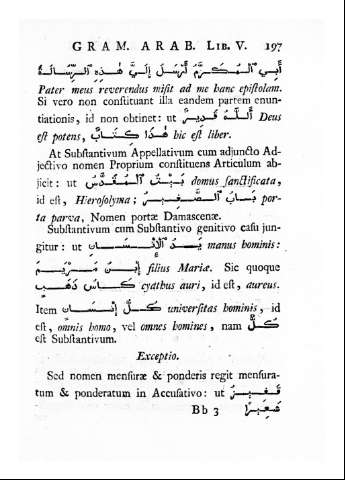 GRAM. ARAB. LIB. V. 197
أَبِي ٱلْمُكَرَّمُ أَرْسَلَ إِلَيَّ هٰذِهِ ٱلرِّسَالَةَ
Pater meus reverendus misit ad me hanc epistolam.
Si vero non constituant illa eandem partem enun-
tiationis, id non obtinet: ut أَللّٰهُ قَدِيرٌ Deus
est potens, هٰذَا كِتَابٌ hic est liber.
At Substantivum Appellativum cum adjuncto Ad-
jectivo nomen Proprium constituens Articulum ab-
jicit: ut بَيْتُ ٱلْمُقَدَّسُ domus sanctificata,
id est, Hierosolyma; بَابُ ٱلصَّغِيرُ por-
ta parva, Nomen portæ Damascenæ.
Substantivum cum Substantivo genitivo casu jun-
gitur: ut يَدُ ٱلْإِنْسَانِ manus hominis:
إِبْنُ مَرْيَمَ filius Mariæ. Sic quoque
كَاسُ ذَهَبٍ cyathus auri, id est, aureus.
Item كُلُّ إِنْسَانٍ universitas hominis, id
est, omnis homo, vel omnes homines, nam كُلٌّ
est Substantivum.
Exceptio.
Sed nomen mensuræ & ponderis regit mensura-
tum & ponderatum in Accusativo: ut قَفِيزٌ
Bb 3 شَعِيرًا